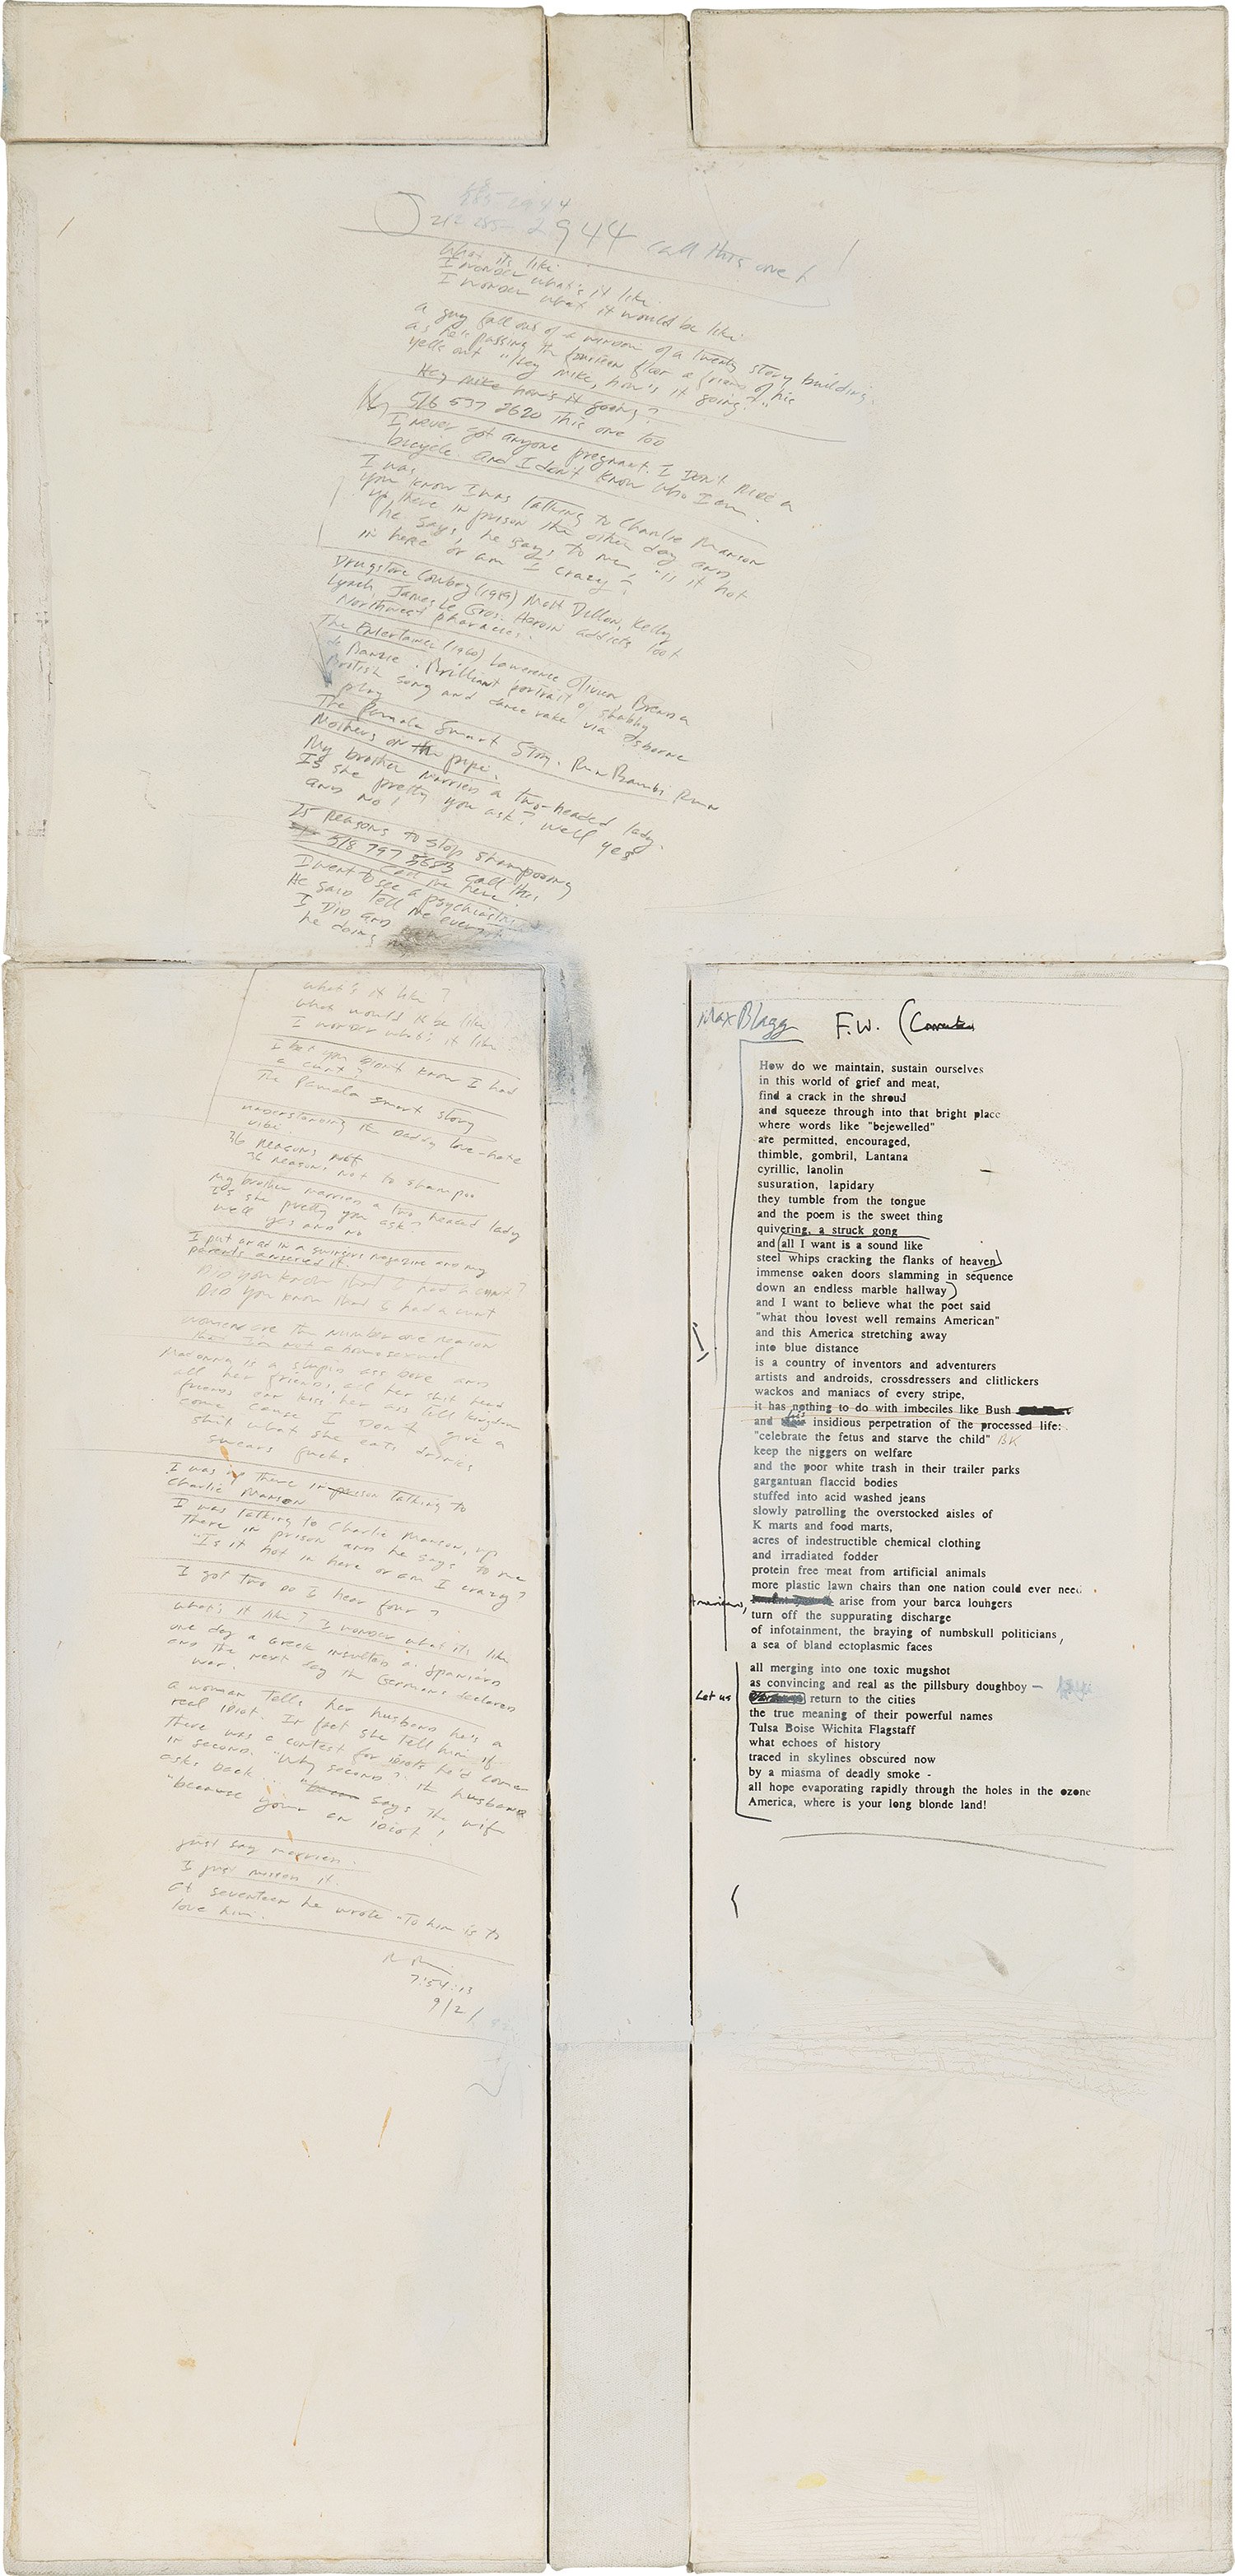 944 call this one!
What its like
I wonder what's it like
I wonder what it would be like
a guy fall out of a window of a twenty story building.
as he's passing the fourteen floor a friend of his
yells out "Hey Mike, how's it going?"
Hey Mike how's it going?
516 537 2620 This one too
I never got anyone pregnant. I Don't ride a
bicycle. and I don't know who I am.
I was
you know I was talking to Charlie Manson
up there in prison the other day and
he says, he says to me, "Is it hot
in here or am I crazy?
Drugstore Cowboy (1989) Matt Dillon, Kelly
Lynch, James Le Gros. Heroin addicts loot
Northwest pharmacies.
The Entertainer (1960) Lawerence Olivier, Brenda
de Banzie. Brilliant portrait of shabby
British song and dance rake via Osborne
play
The Pamala Smart Story. Run Bambi Run
Mothers on the pipe.
My brother married a two-headed lady.
Is she pretty you ask? Well yes
and no!
15 reasons to stop shampooing
518 797 3683 call this
Call me here.
I went to see a psychiatrist
He said tell me every
I Did and now
he doing my
what's it like?
what would it be like?
I wonder what's it like
I bet you didn't know I had
a cunt?
The Pamala Smart Story
understanding the Daddy love-hate
vibe
36 reasons not
36 reasons not to shampoo
My brother married a two headed lady
Is she pretty you ask?
well yes and no
I put an ad in a swingers magazine and my
parents answered it.
Did you know that I had a cunt?
Did you know that I had a cunt
women are the number one reason
that I'm not a homosexual
Madonna is a stupid ass bore and
all her friends, all her shit head
friends can kiss her ass till kingdom
come cause I Don't give a
shit what she eats drinks
swears fucks
I was up there in prison talking to
Charlie Manson
I was talking to Charlie Manson, up
there in prison and he says to me
"Is it hot in here or am I crazy?
I got two do I hear four?
What's it like? I wonder what its like
one day a Greek insulted a Spaniard
and the next day the Germans declared
war.
a woman tells her husband he's a
real idiot. In fact she tell him if
there was a contest for idiots he'd come
in second. "Why second?" the husband
asks back. says the wife
"because your an idiot!
just say married.
I just missed it.
at seventeen he wrote "To him is to
love him.
7:54:13
9/2/
Max Blagg F.W. (
How do we maintain, sustain ourselves
in this world of grief and meat,
find a crack in the shroud
and squeeze through into that bright place
where words like "bejewelled"
are permitted, encouraged,
thimble, gombril, Lantana
cyrillic, lanolin
susuration, lapidary
they tumble from the tongue
and the poem is the sweet thing
quivering, a struck gong
and (all I want is a sound like
steel whips cracking the flanks of heaven)
immense oaken doors slamming in sequence
down an endless marble hallway)
and I want to believe what the poet said
"what thou lovest well remains American"
and this America stretching away
into blue distance
is a country of inventors and adventurers
artists and androids, crossdressers and clitlickers
wackos and maniacs of every stripe,
it has nothing to do with imbeciles like Bush
and his insidious perpetration of the processed life:
"celebrate the fetus and starve the child" BK
keep the niggers on welfare
and the poor white trash in their trailer parks
gargantuan flaccid bodies
stuffed into acid washed jeans
slowly patrolling the overstocked aisles of
K marts and food marts,
acres of indestructible chemical clothing
and irradiated fodder
protein free meat from artificial animals
more plastic lawn chairs than one nation could ever need
Americans, arise from your barca louhgers
turn off the suppurating discharge
of infotainment, the braying of numbskull politicians,
a sea of bland ectoplasmic faces
all merging into one toxic mugshot
as convincing and real as the pillsbury doughboy –
Let us return to the cities
the true meaning of their powerful names
Tulsa Boise Wichita Flagstaff
what echoes of history
traced in skylines obscured now
by a miasma of deadly smoke -
all hope evaporating rapidly through the holes in the ozone
America, where is your long blonde land!